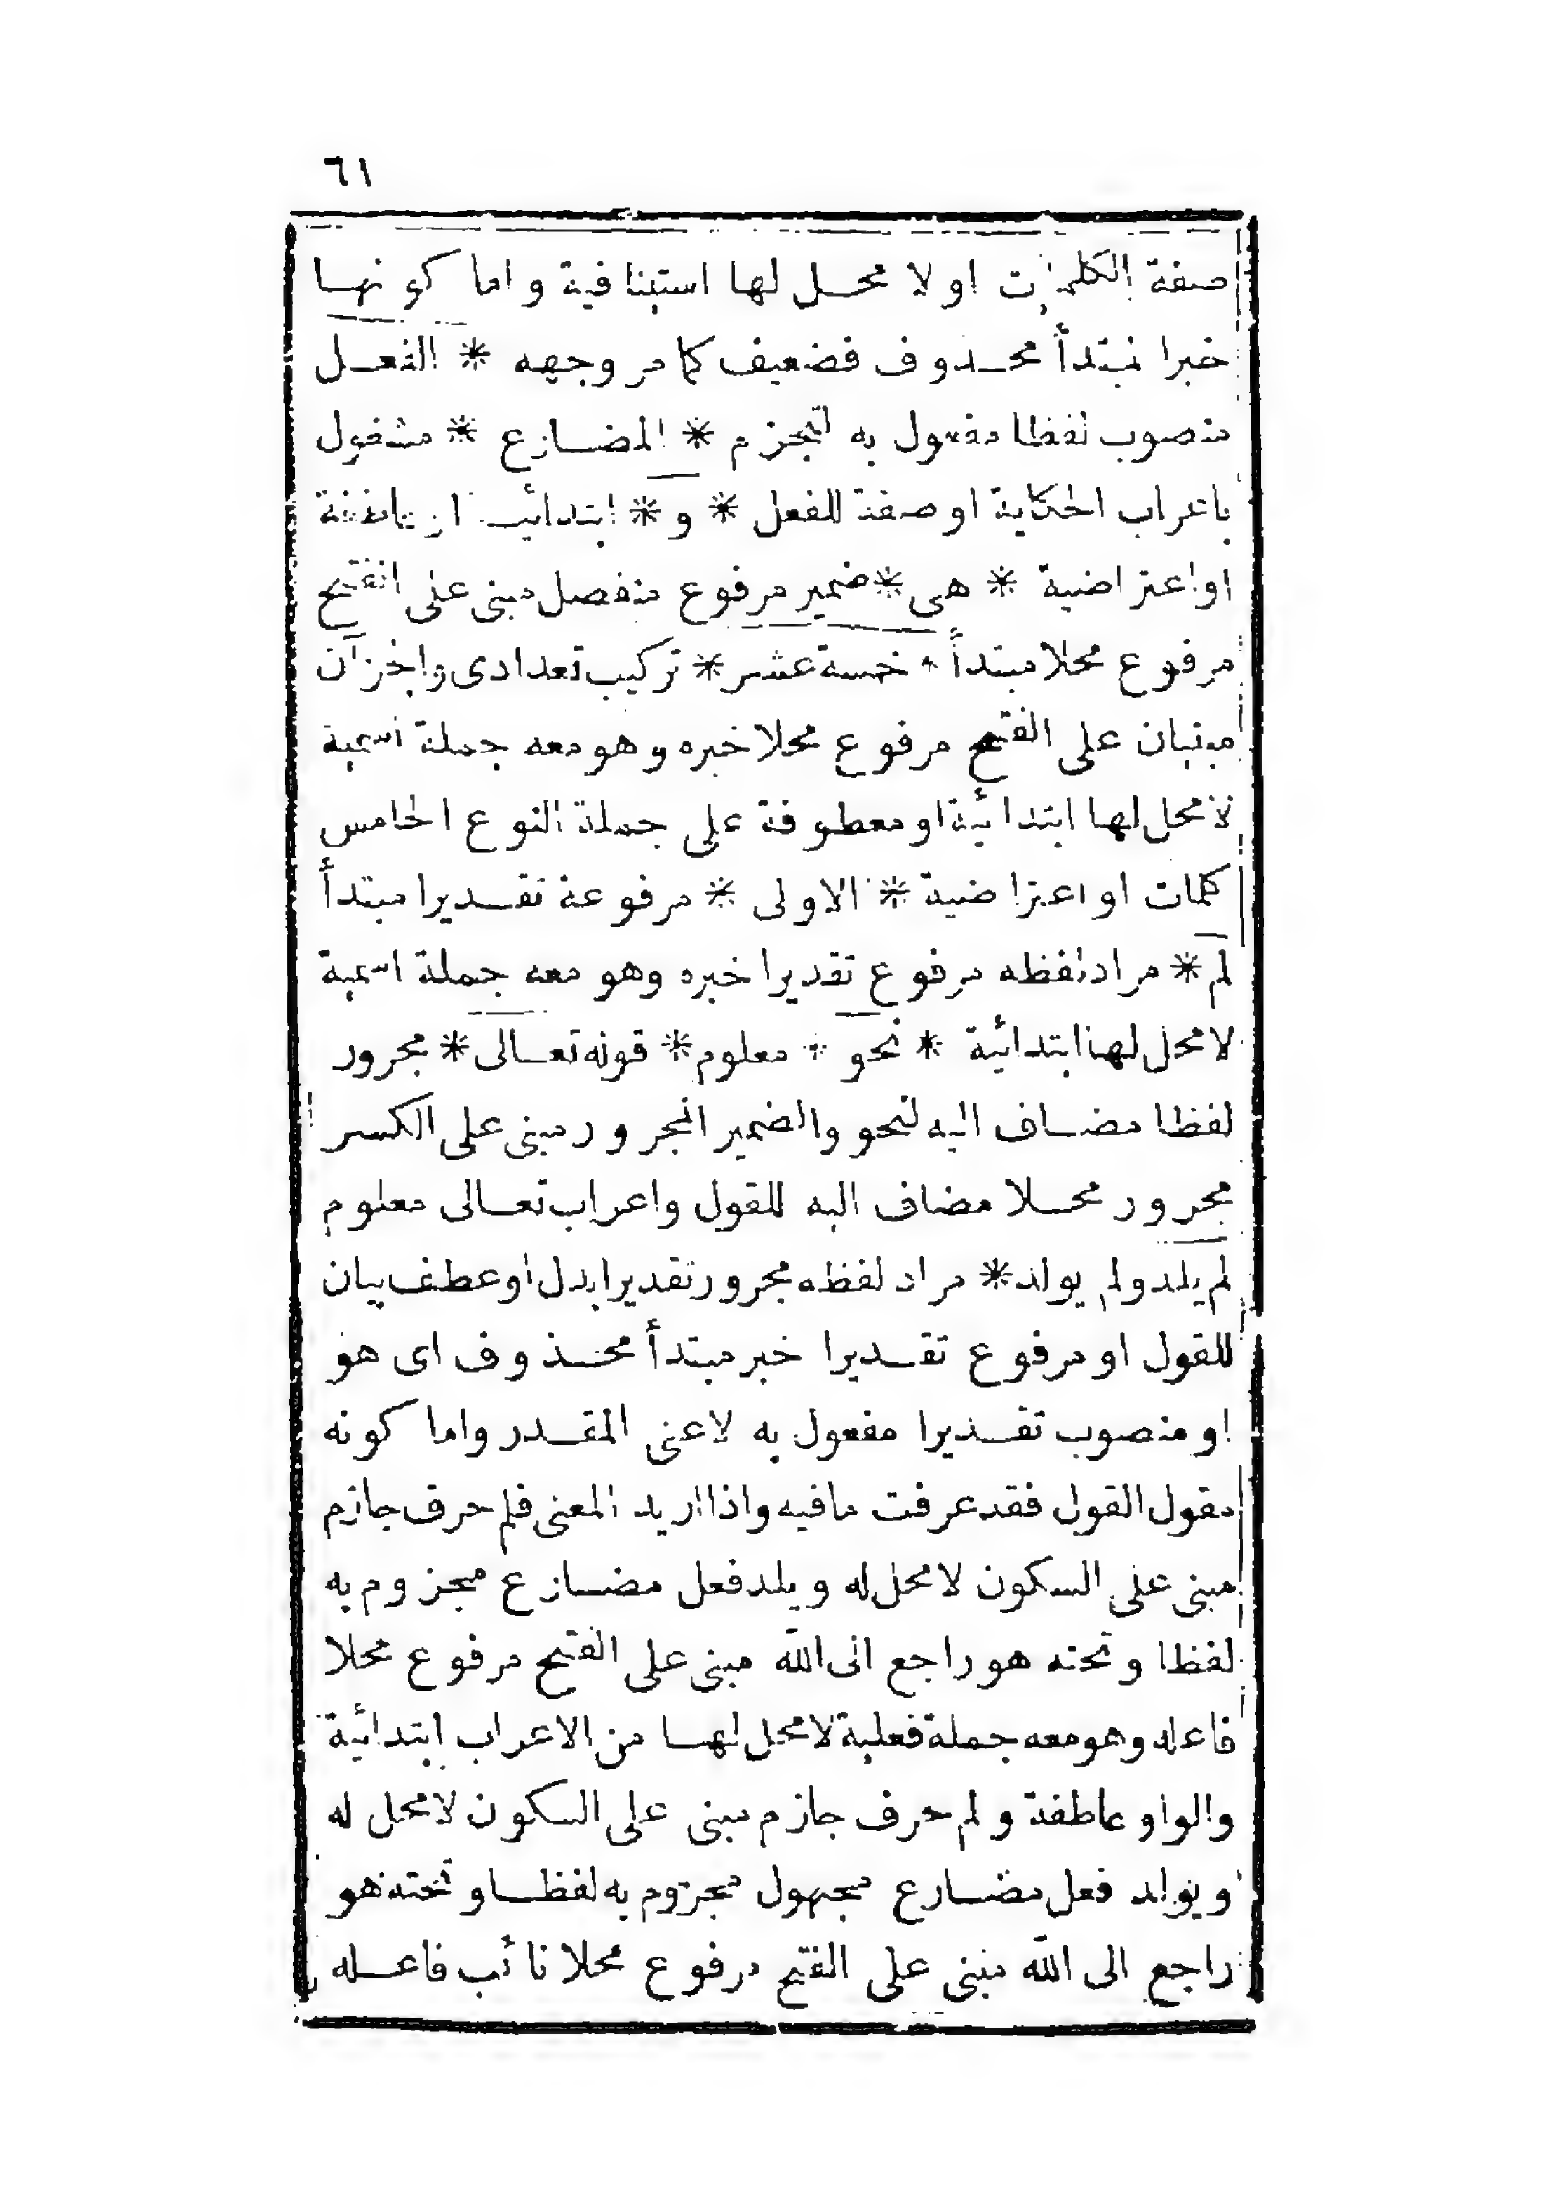 ٦١
صفة الكلمات او لا محل لها استينافية واما كونها
خبرا لمبتدأ محذوف فضعيف كما مر وجهه * الفعل
منصوب لفظا مفعول به لتجزم * المضارع * مشغول
باعراب الحكاية او صفة للفعل * و * ابتدائية او عاطفة
او اعتراضية * هى * ضمير مرفوع منفصل مبنى على الفتح
مرفوع محلا مبتدأ * خمسة عشر * تركيب تعدادى والجزآن
مبنيان على الفتح مرفوع محلا خبره وهو معه جملة اسمية
لا محل لها ابتدائية او معطوفة على جملة النوع الخامس
كلمات او اعتراضية * الاولى * مرفوعة تقديرا مبتدأ
لم * مراد لفظه مرفوع تقديرا خبره وهو معه جملة اسمية
لا محل لها ابتدائية * نحو * معلوم * قوله تعالى * مجرور
لفظا مضاف اليه لنحو والضمير المجرور مبنى على الكسر
مجرور محلا مضاف اليه للقول واعراب تعالى معلوم
لم يلد ولم يولد * مراد لفظه مجرور تقديرا بدل او عطف بيان
للقول او مرفوع تقديرا خبر مبتدأ محذوف اى هو
او منصوب تقديرا مفعول به لاعنى المقدر واما كونه
مقول القول فقد عرفت ما فيه واذا اريد المعنى فلم حرف جازم
مبنى على السكون لا محل له ويلد فعل مضارع مجزوم به
لفظا وتحته هو راجع الى الله مبنى على الفتح مرفوع محلا
فاعله وهو معه جملة فعلية لا محل لها من الاعراب ابتدائية
والواو عاطفة ولم حرف جازم مبنى على السكون لا محل له
ويولد فعل مضارع مجهول مجزوم به لفظا وتحته هو
راجع الى الله مبنى على الفتح مرفوع محلا نائب فاعله